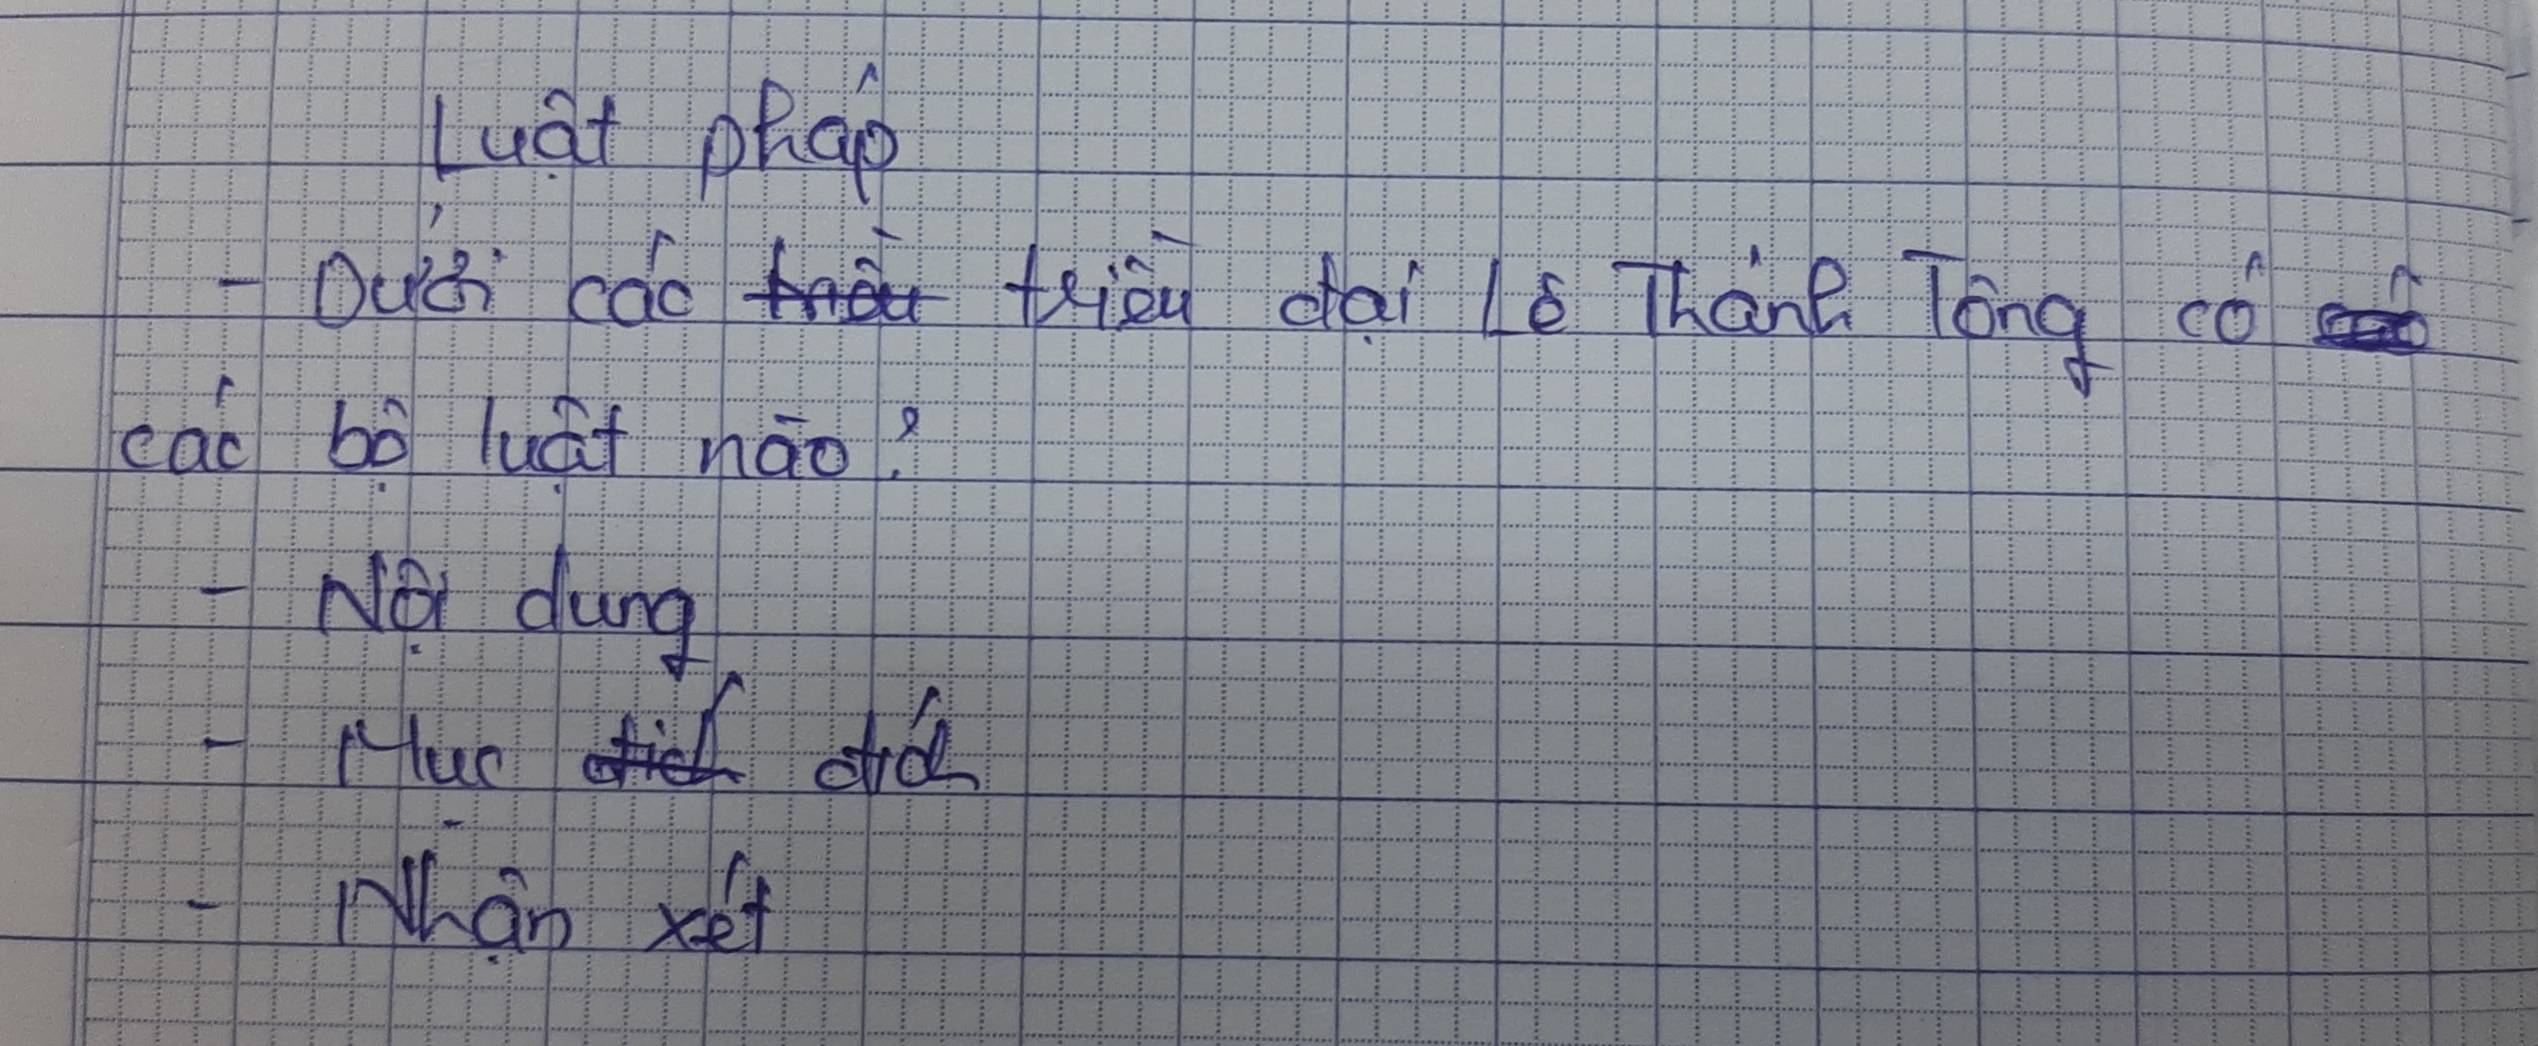 Luật pháp
- Dưới các triều đại Lê Thánh Tông có
các bộ luật nào?
- Nội dung
- Mục đích
- Nhận xét